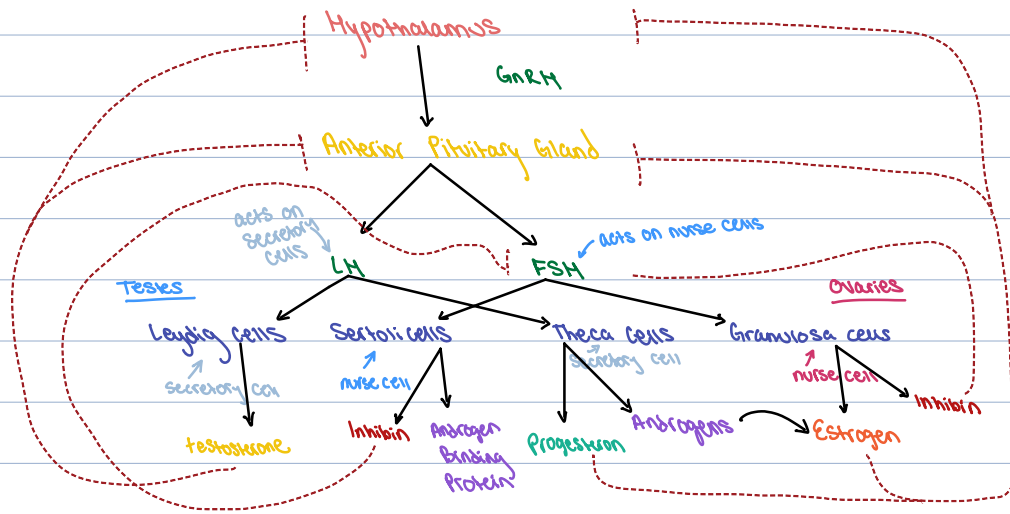 Hypothalamus
GnRH
Anterior Pituitary Gland
acts on
secretory
cells
acts on nurse cells
LH
FSH
Testes
Ovaries
Leydig cells
Sertoli cells
Theca cells
Granulosa cells
secretory cell
nurse cell
secretory cell
nurse cell
testosterone
Inhibin
Androgen
Binding
Protein
Progesteron
Androgens
Estrogen
Inhibin